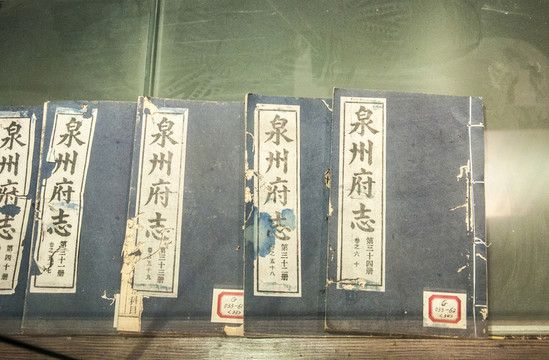 泉州府志
第四十册
泉州府志
第三十一册
泉州府志
第三十三册
卷之五十九
泉州府志
第三十二册
之五十八
泉州府志
第三十四册
卷之六十
G
033-62